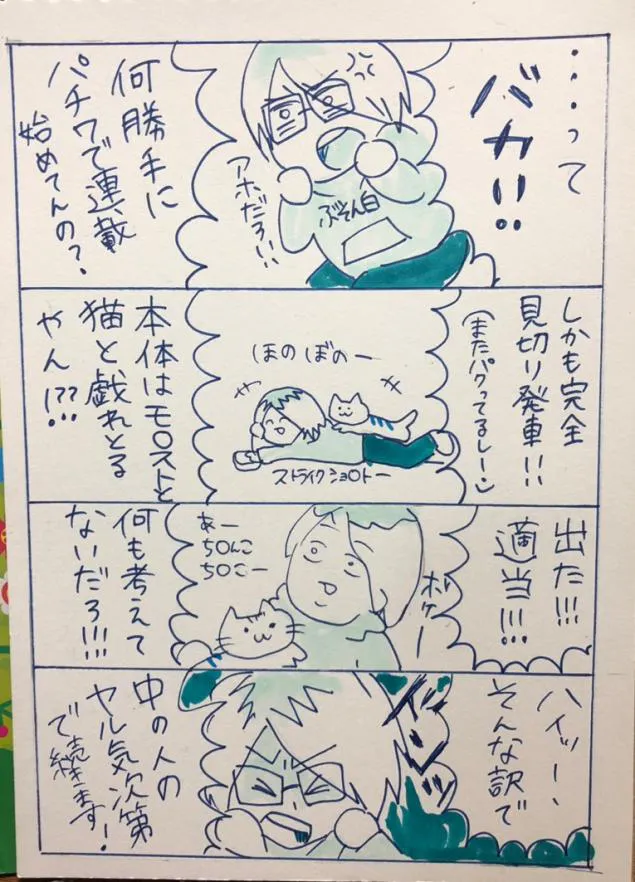 ・・・って
バカ!!
カッ
アホだろ!!
ぶそん白
何勝手に
パチワで連載
始めてんの?
しかも完全
見切り発車!!
(またパクってるしー)
ほのぼのー
ストライクショ○トー
本体はモ○ストと
猫と戯れとる
やん!??
出た!!!
適当!!!
ボケーー
あー
ち○んこ
ち○こー
何も考えて
ないだろ!!!
ハイッー、
そんな訳で
中の人の
ヤル気次第
で続きます!